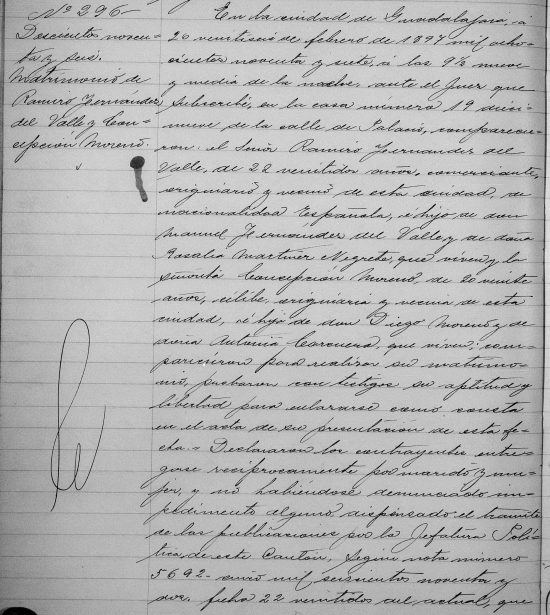 Nº 296-
Doscientos noven-
ta y seis.
Matrimonio de
Ramiro Fernández
del Valle y Con-
cepcion Moreno.
En la ciudad de Guadalajara, á
26 veintiseis de febrero de 1897 mil ocho-
cientos noventa y siete, á las 9½ nueve
y media de la noche, ante el Juez que
subscribe, en la casa número 19 dieci-
nueve de la calle de Palacio, comparecie-
ron: el Señor Ramiro Fernandez del
Valle, de 22 veintidos años, comerciante,
originario y vecino de esta ciudad, de
nacionalidad Española, é hijo de don
Manuel Fernández del Valle y de doña
Rosalia Martinez Negrete, que viven; y la
señorita Concepción Moreno, de 20 veinte
años, célibe, originaria y vecina de esta
ciudad, é hija de don Diego Moreno y de
doña Antonia Corcuera, que viven: com-
parecieron para realizar su matrimo-
nio, probaron con testigos su aptitud y
libertad para enlazarse como consta
en el acta de su presentacion de esta fe-
cha.- Declararon los contrayentes entre-
garse recíprocamente por marido y mu-
jer, y no habiéndose denunciado im-
pedimento alguno dispensado el tramite
de las publicaciones por la Jefatura Polí-
tica de este Cantón, segun nota número
5692- cinco mil seiscientos noventa y
dos, fecha 22 veintidos del actual, que